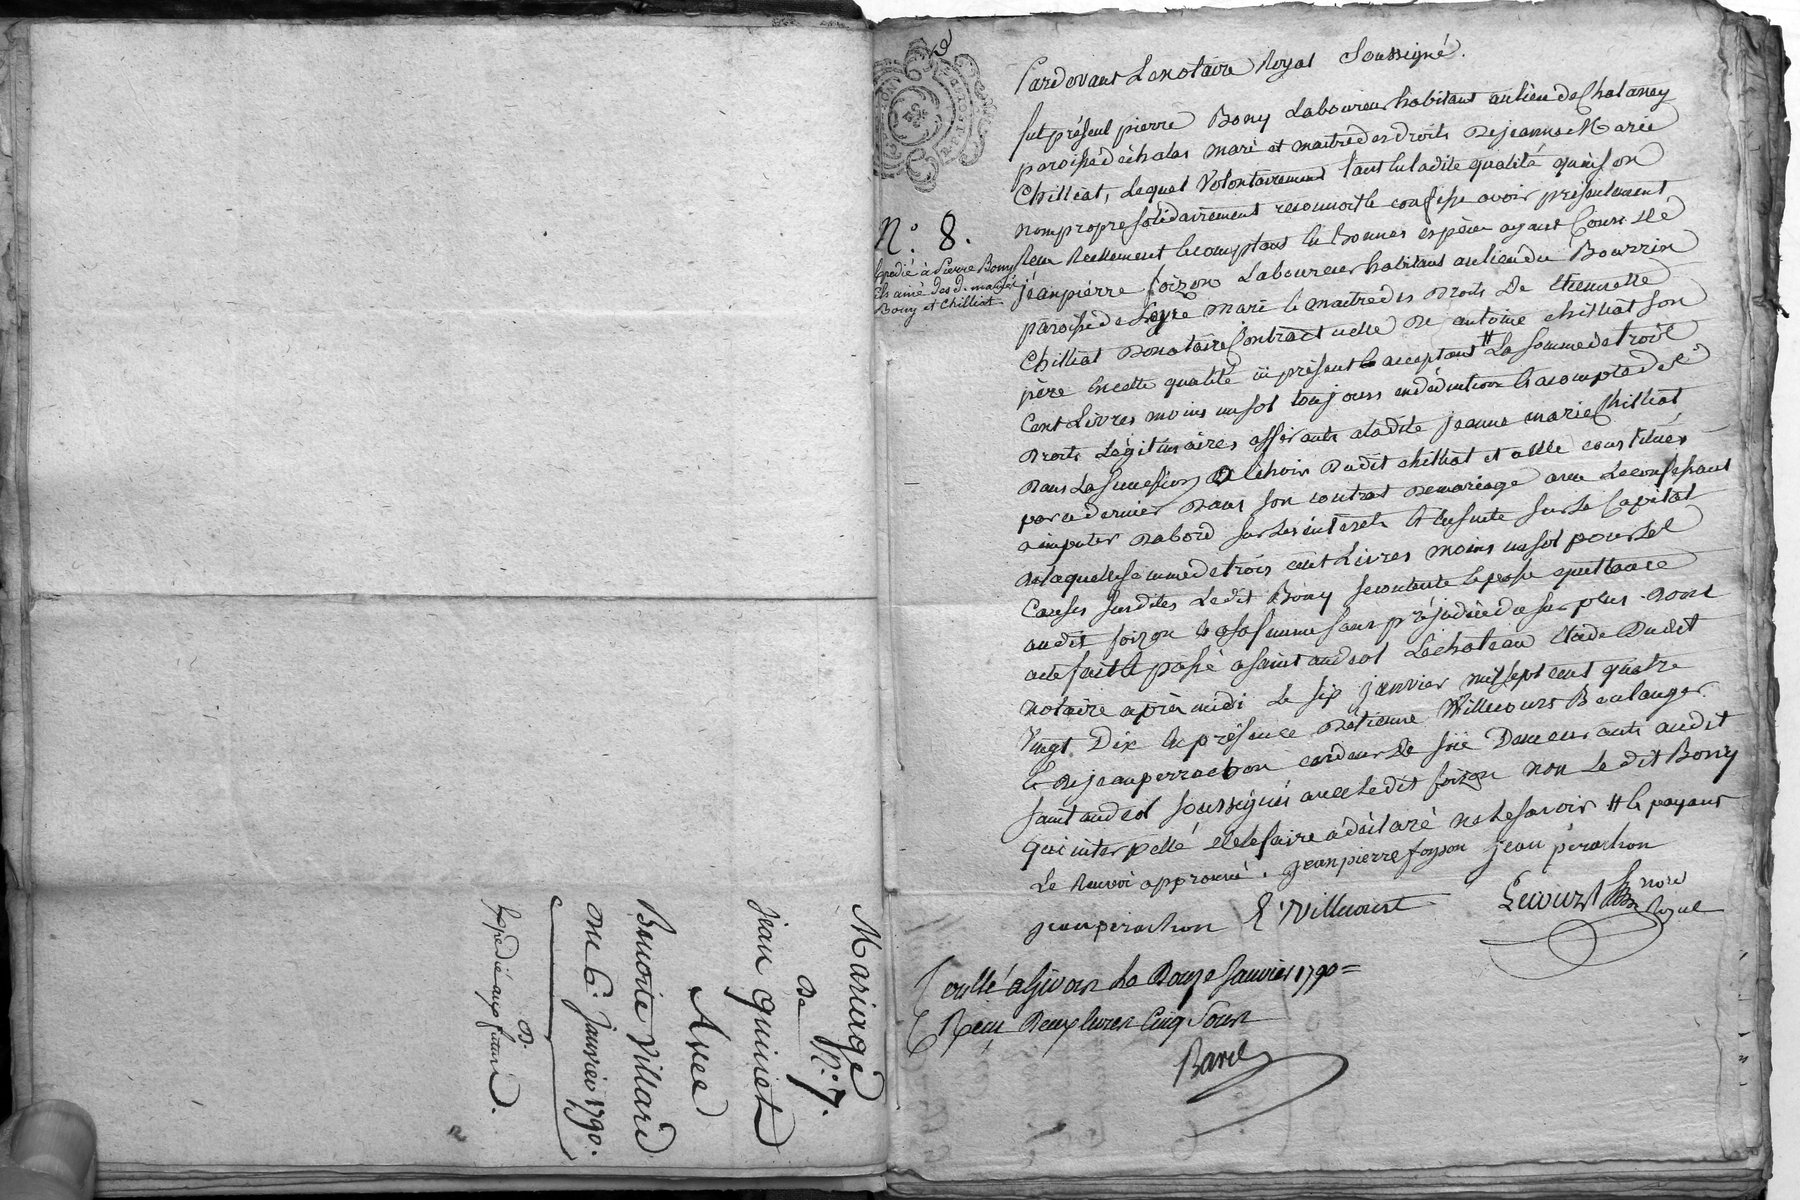 Mariage
N.° 7.
De
jean quinet
Avec
Benoite Villard
Du 6. Janvier 1790.
Expedié aux futurs.
N.° 8.
Expedié à Pierre Bony
fils ainé des d. mariés
Bony et Chilliat.
Pardevant Le notaire Royal Soussigné.
fut présent pierre Bony Laboureur habitant au lieu de Chalaney
paroisse d'échalas mari et maitre des droits De jeanne Marie
Chilliat, Lequel Volontairement tant en ladite qualité qu'en son
nom propre solidairement reconnoit & confesse avoir présentement
Reçu Réellement & comptant En Bonnes espèces ayant Cours De
jean pierre foizon Laboureur habitant au lieu du Bourrin
paroisse de mari & maitre des Droits De Etiennette
Chilliat Donataire Contractuelle De antoine chilliat son
père En cette qualité ici présent & acceptant # La somme de trois
Cent Livres moins un sol toujours en déduction & acompte des
Droits Légitimaires afférants a ladite jeanne marie Chilliat
Dans La succession a Echoir Dudit chilliat et a elle constitués
par ce dernier Dans son contrat De mariage avec Le confessant
a imputer Dabord sur Les interets & Ensuite sur Le Capital
De laquelle somme de trois cent Livres moins un sol pour Les
Causes susdites Ledit Bony se contente & passe quittance
audit foizon & sans préjudice du surplus. Dont
acte fait & passé a saint andeol Le chateau Etude Dudit
notaire après midi Le six janvier mil sept cent quatre
Vingt Dix En présence D'etienne Villecours Boulanger
& De jean perrachon cardeur De soie Demeurants audit
saint andeol soussignés avec Ledit foizon non Le dit Bony
qui interpellé De le faire a déclaré ne Le savoir # & payant
Le Renvoi approuvé. jean pierre foyson jean pérachon
jean perachon E. Villecourt Lecourt nore
Royal
Controllé a Givors Le Douze Janvier 1790 =
Reçu Deux livres Cinq Sous
Barel